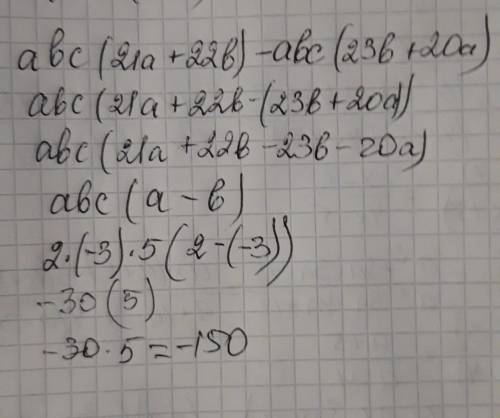 abc(21a+22b)-abc(23b+20a)
abc(21a+22b-(23b+20a))
abc(21a+22b-23b-20a)
abc(a-b)
2·(-3)·5(2-(-3))
-30(5)
-30·5=-150